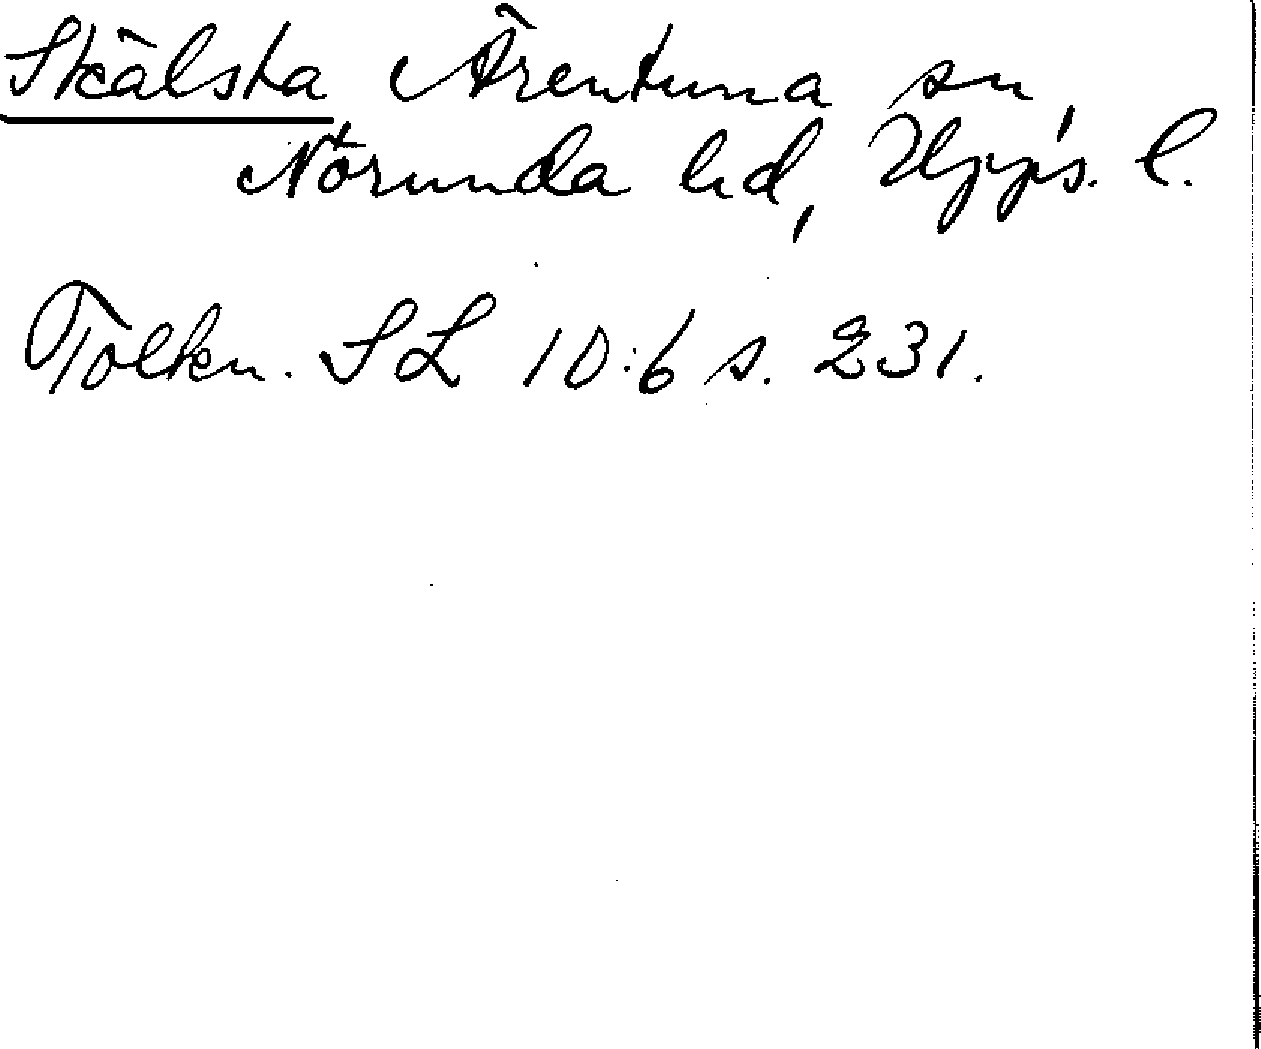 Skälsta Ärentuna sn,
Norunda hd, Upps. l.
Tolkn. SL 10:6 s. 231.